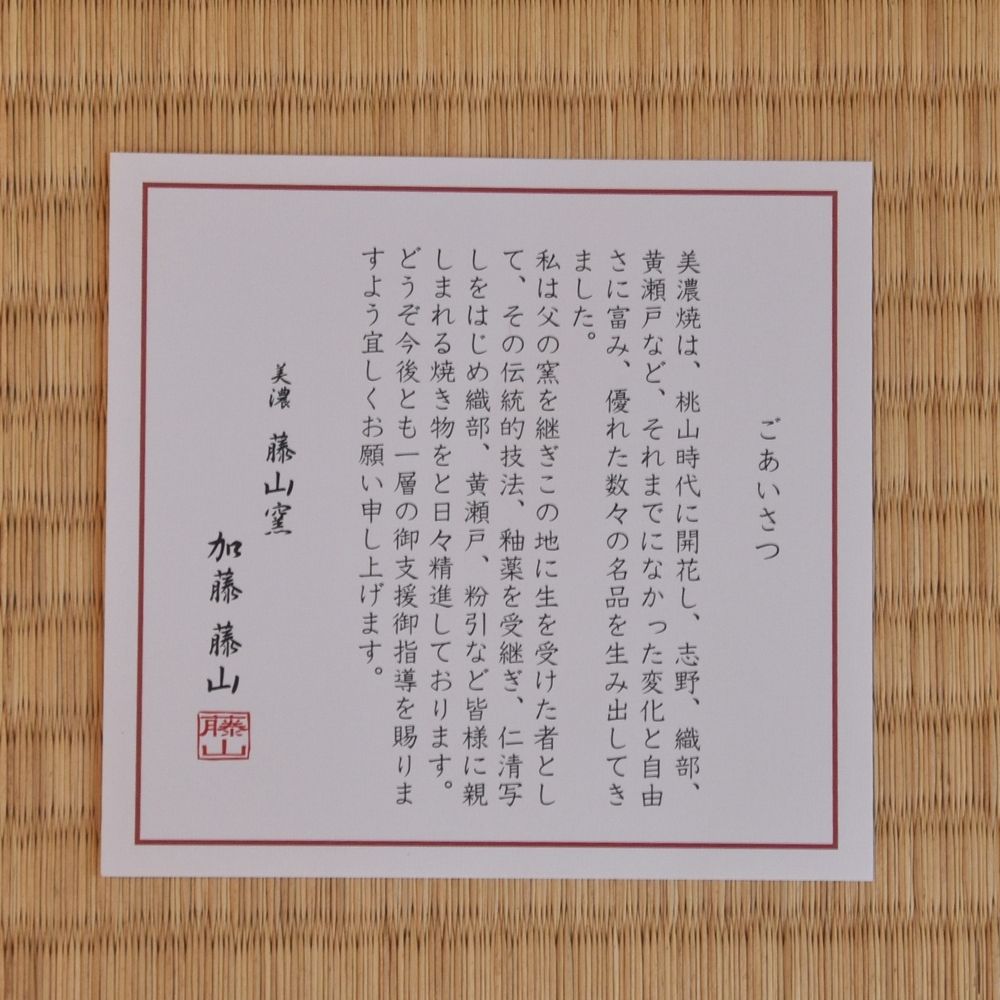 ごあいさつ
美濃焼は、桃山時代に開花し、志野、織部、
黄瀬戸など、それまでになかった変化と自由
さに富み、優れた数々の名品を生み出してき
ました。
私は父の窯を継ぎこの地に生を受けた者とし
て、その伝統的技法、釉薬を受継ぎ、仁清写
しをはじめ織部、黄瀬戸、粉引など皆様に親
しまれる焼き物をと日々精進しております。
どうぞ今後とも一層の御支援御指導を賜りま
すよう宜しくお願い申し上げます。
美濃 藤山窯
加藤藤山
藤山